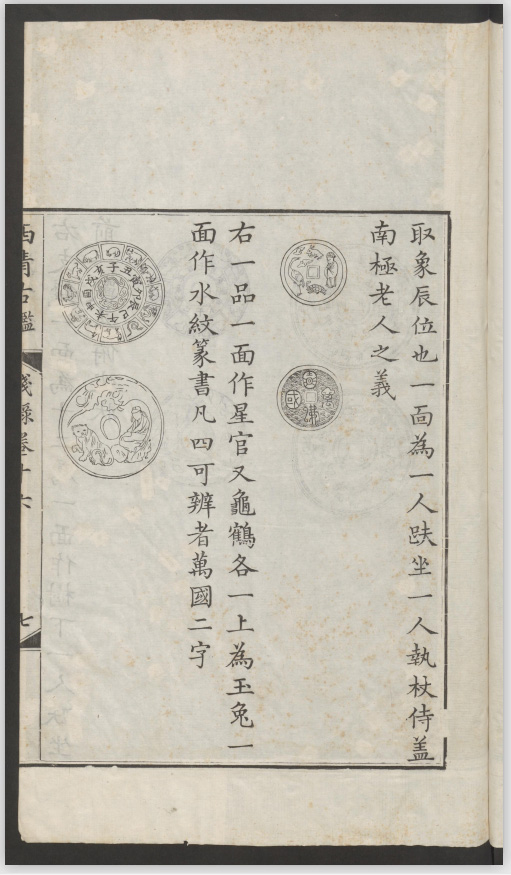 取象辰位也一面為一人趺坐一人執杖侍盖
南極老人之義
右一品一面作星官又龜鶴各一上為玉兔一
面作水紋篆書凡四可辨者萬國二字
子丑寅卯辰巳午未申酉戌亥
西清古鑑
錢錄卷十六
七